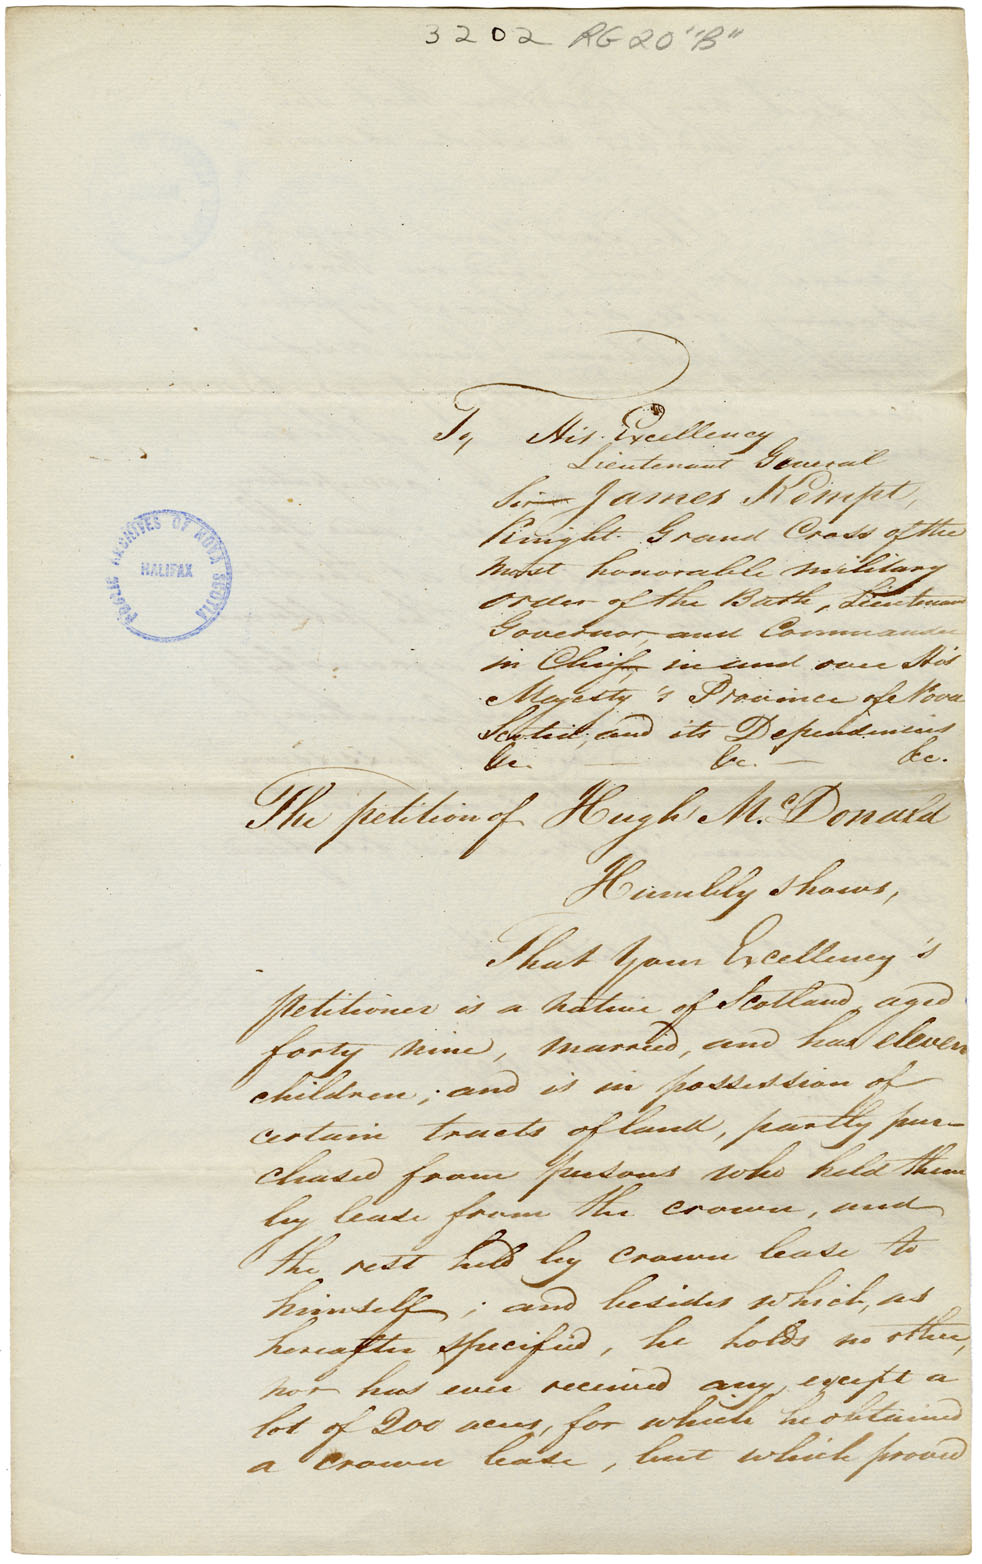 3202 RG 20 "B"
To, His Excellency
Lieutenant General
Sir James Kempt,
Knight Grand Cross of the
most honorable military
order of the Bath, Lieutenant
Governor, and Commander
in Chief, in and over His
Majesty's Province of Nova
Scotia, and its Dependencies
&c. — &c. — &c.
PUBLIC ARCHIVES OF NOVA SCOTIA
HALIFAX
The petition of Hugh McDonald
Humbly shows,
That Your Excellency's
petitioner is a native of Scotland, aged
forty nine, married, and has eleven
children; and is in possession of
certain tracts of land, partly pur-
chased from persons who held them
by lease from the crown, and
the rest held by crown lease to
himself; and besides which, as
hereafter specified, he holds no other,
nor has ever received any, except a
lot of 200 acres, for which he obtained
a crown lease, but which proved